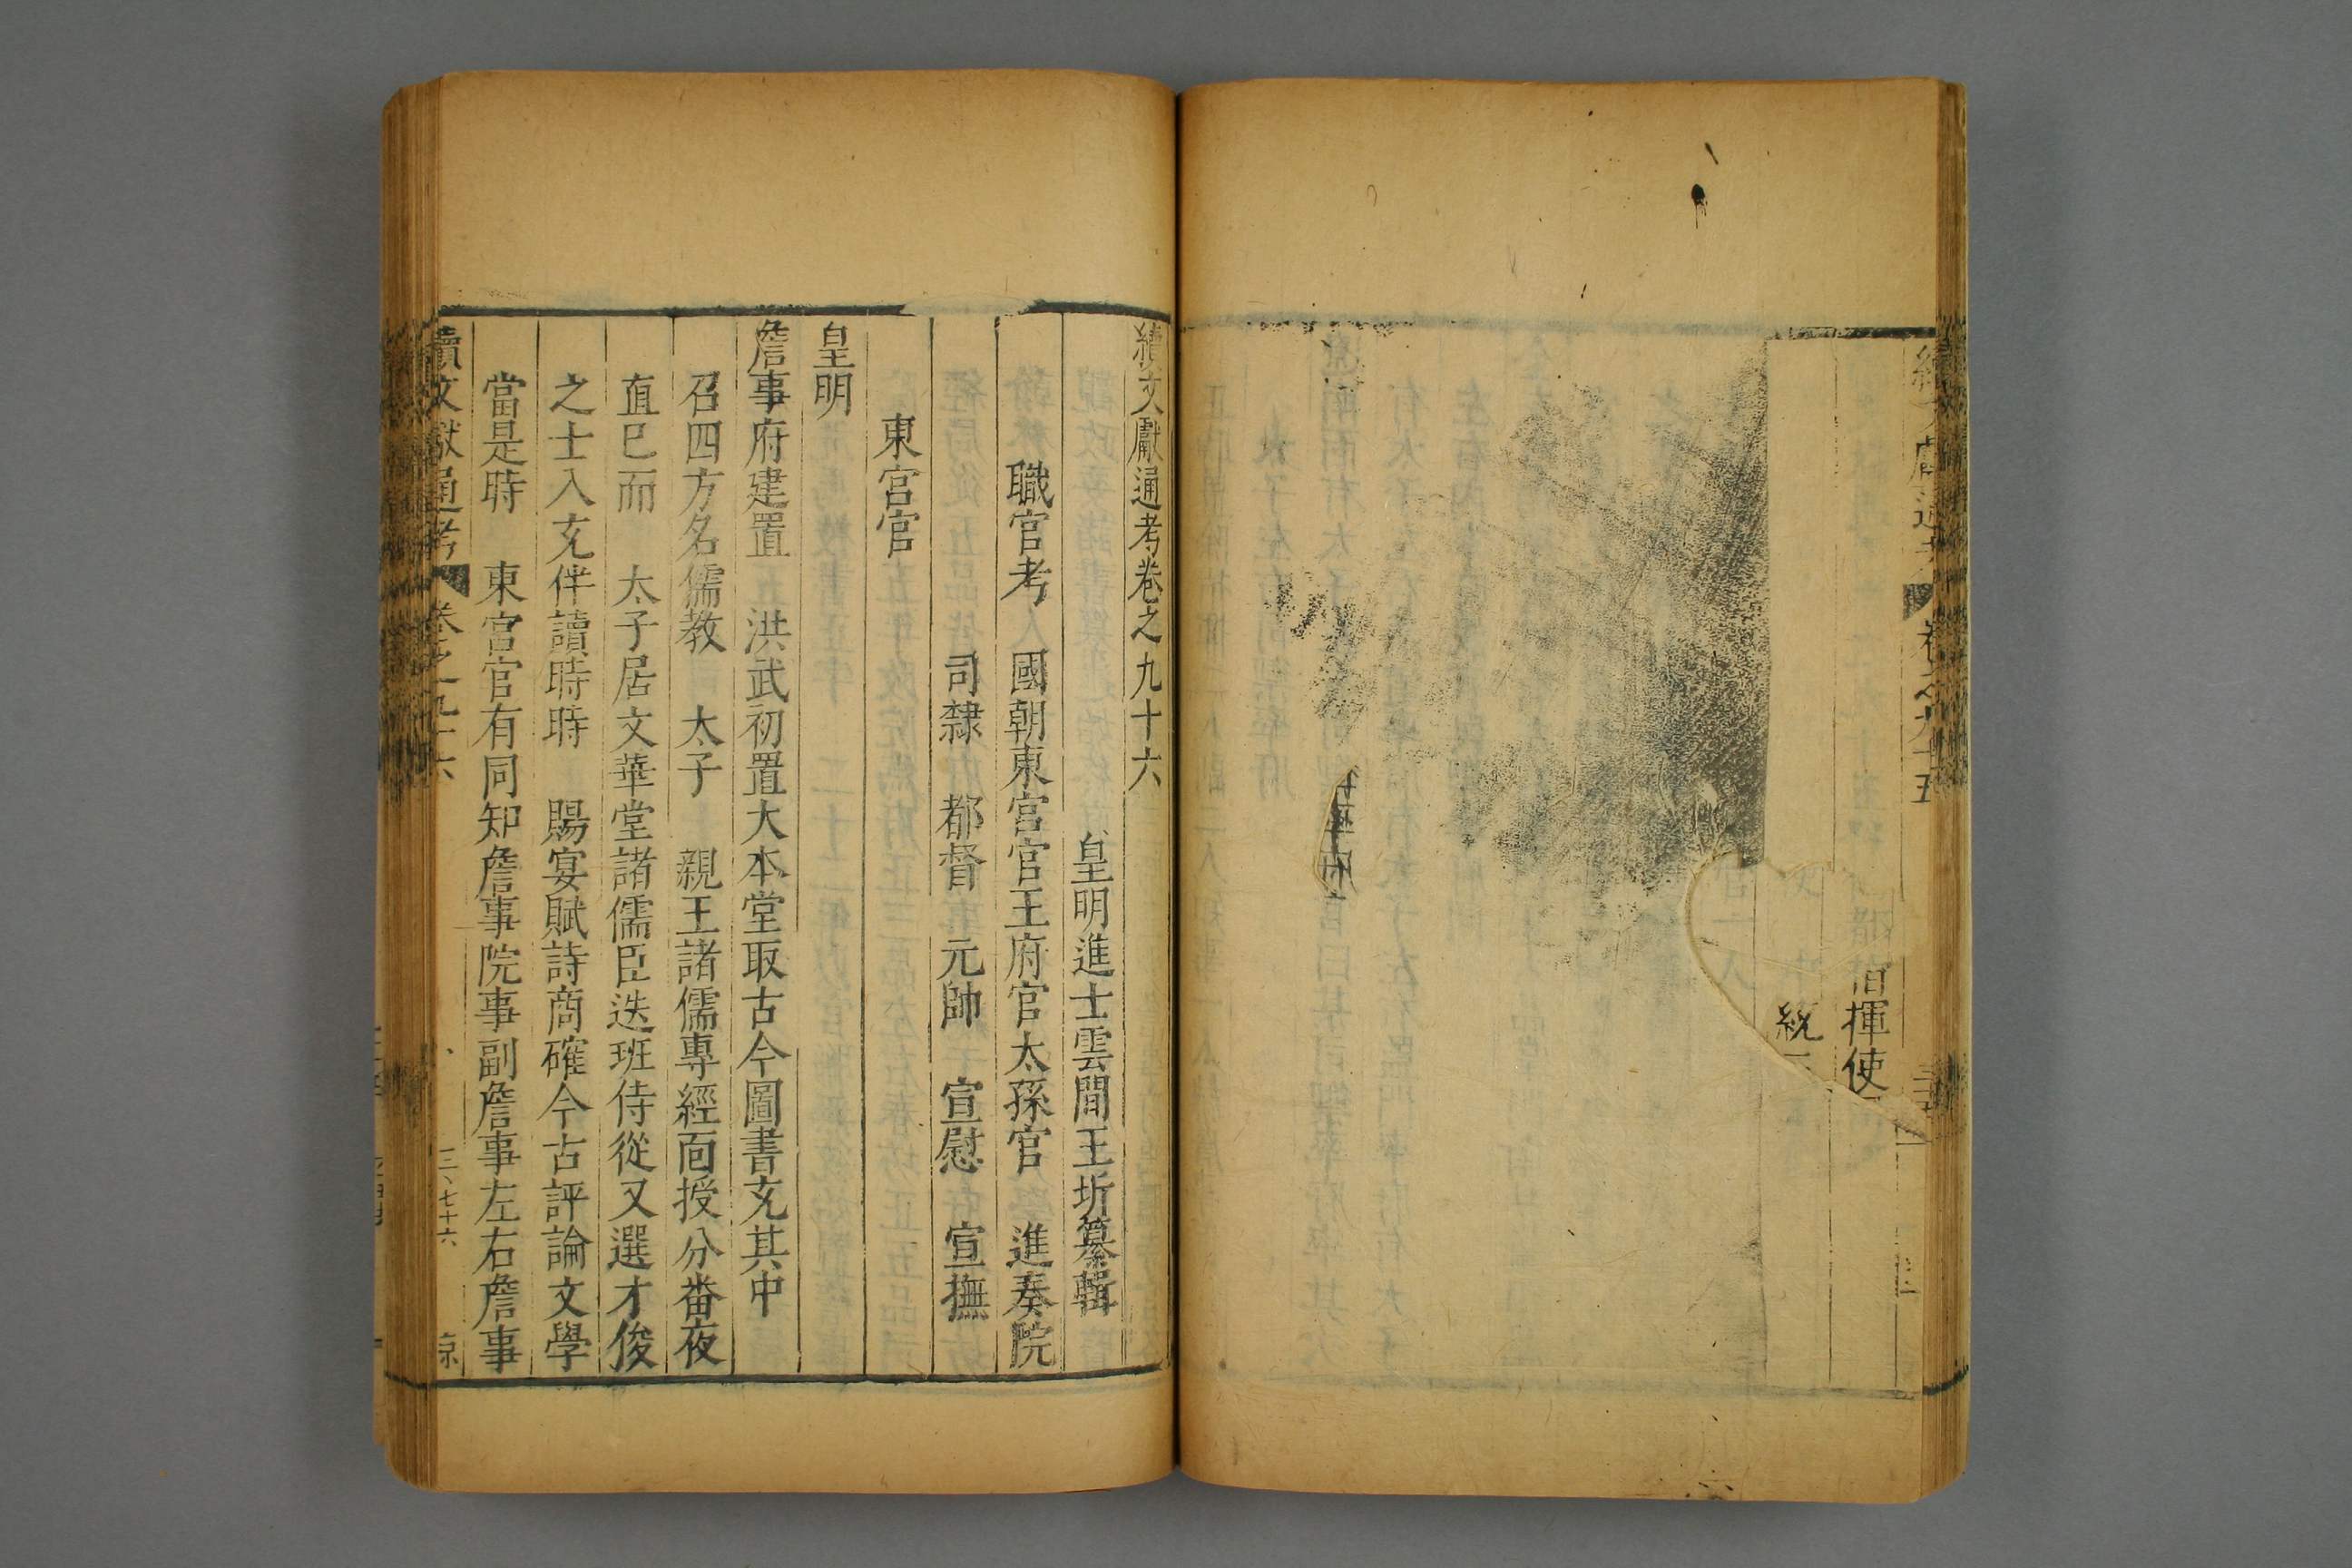 揮使
統
續文獻通考卷之九十六
皇明進士雲間王圻纂輯
職官考 國朝東宮官王府官太孫官 進奏院
司隸 都督 元帥 宣慰 宣撫
東宮官
皇明
詹事府建置 洪武初置大本堂取古今圖書充其中
召四方名儒教 太子 親王諸儒專經面授分番夜
直巳而 太子居文華堂諸儒臣迭班侍從又選才俊
之士入充伴讀時時 賜宴賦詩商確今古評論文學
當是時 東宮官有同知詹事院事副詹事左右詹事
續文獻通考 卷之九十六
三、七十六